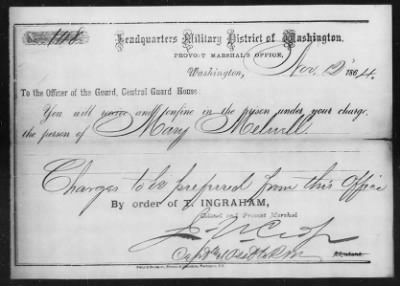 No 148
Headquarters Military District of Washington.
PROVOST MARSHAL'S OFFICE,
Washington, Nov. 12" 1864.
To the Officer of the Guard, Central Guard House
You will receive and confine in the prison under your charge,
the person of Mary Melwell.
Charges to be prepared from this Office
By order of T. INGRAHAM,
Colonel and Provost Marshal
Capt